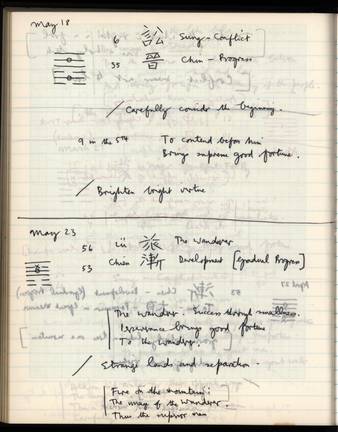 May 18
6 訟 Sung - Conflict
35 晉 Chin - Progress
/ Carefully consider the beginning.
9 in the 5th To contend before him
Brings supreme good fortune.
/ Brighten bright virtue
May 23
56 Lü 旅 The Wanderer
53 Chien 漸 Development [Gradual Progress]
The Wanderer. Success through smallness.
Perseverance brings good fortune
To the wanderer.
/ Strange lands and separation.
Fire on the mountain:
The image of the Wanderer.
Thus the superior man